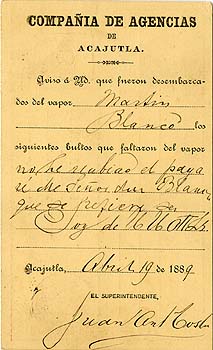 COMPAÑIA DE AGENCIAS
DE
ACAJUTLA.
Aviso á UD. que fueron desembarca-
dos del vapor, Martin
Blanco los
siguientes bultos que faltaron del vapor
no he recibido el paga
ré de Señor Blanco
que se refiere
Soy de U
Acajutla, Abril 19 de 1889
EL SUPERINTENDENTE,
Juan Ant